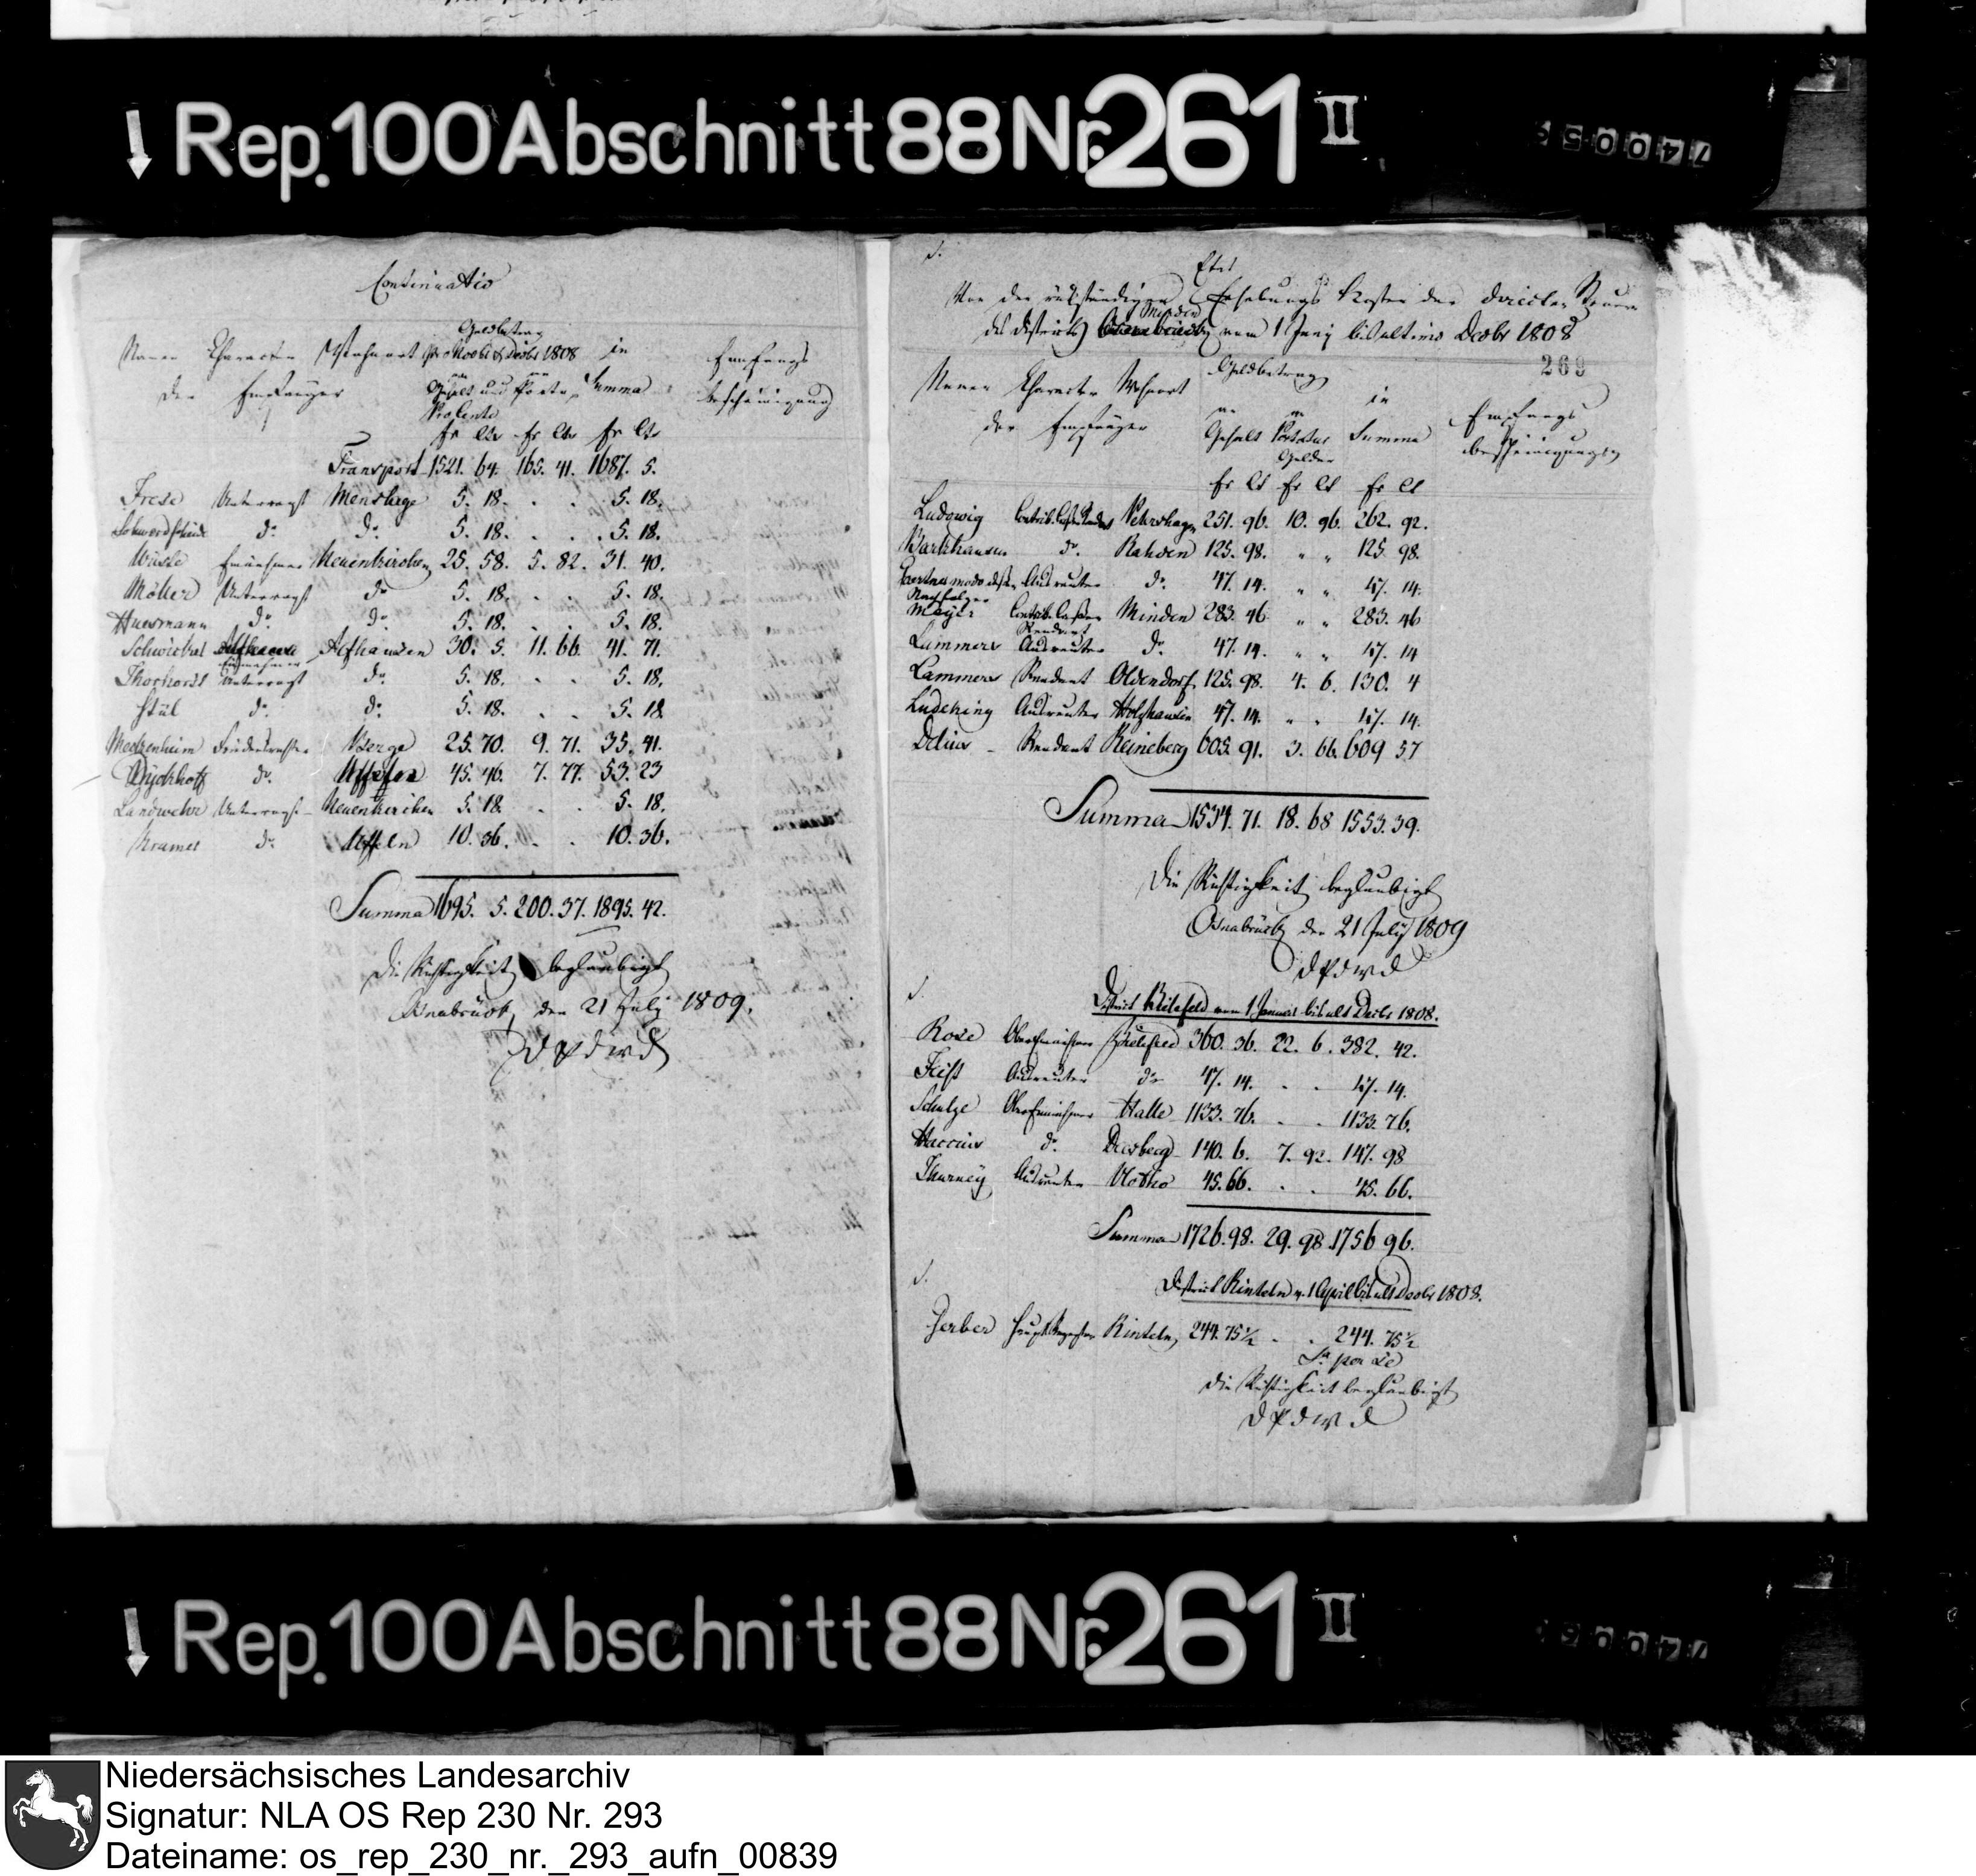 Rep. 100 Abschnitt 88 Nr. 261 II
74005
Continuatio
Geldbetrag
Namen Character Wohnort pr Novbr & Decbr 1808 in Empfangs
der Empfänger Gehalt und Porto Summa bescheinigung
fr cts fr cts fr cts
Transport 1521. 64. 165. 41. 1687. 5.
Frese Untervogt Menslage 5. 18. . . 5. 18.
do do 5. 18. . . 5. 18.
Einnehmer Neuenkirchen 25. 58. 5. 82. 31. 40.
Möller Untervogt do 5. 18. . . 5. 18.
Huesmann do do 5. 18. . . 5. 18.
Einnehmer Alfhausen 30. 5. 11. 66. 41. 71.
Untervogt do 5. 18. . . 5. 18.
Stül do do 5. 18. . . 5. 18.
Berge 25. 70. 9. 71. 35. 41.
do 45. 46. 7. 77. 53. 23
Landwehr Untervogt Neuenkirchen 5. 18. . . 5. 18.
Kramer do Uffeln 10. 36. . . 10. 36.
Summa 1695. 5. 200. 37. 1895. 42.
Die Richtigkeit beglaubigt
Osnabrück den 21 July 1809.
D P d W D
Etat
Von den rükständigen Erhebungs Kosten der directen Steuer
Minden
des Districts Osnabrück vom 1 Juny bis ultimo Decbr 1808
269
Namen Character Wohnort Geldbetrag in Empfangs
der Empfänger an Gehalt an Portatur Gelder Summa bescheinigung
fr ct fr ct fr ct
Ludowig Petershagen 251. 96. 10. 96. 262. 92.
Barkhausen do Rahden 125. 98. " " 125. 98.
modo dessen Ausreuter do 47. 14. " " 47. 14.
Nachfolger
Meyer Contrib. Cassen Minden 283. 46 " " 283. 46
Rendant
Lümmers Ausreuter do 47. 14. " " 47. 14
Lammers Rendant Oldendorf 125. 98. 4. 6. 130. 4
Ludeking Ausreuter Holzhausen 47. 14. " " 47. 14.
Delius Rendant Reineberg 605. 91. 3. 66. 609 57
Summa 1534. 71. 18. 68 1553. 39.
Die Richtigkeit beglaubigt
Osnabrück den 21 July 1809
D P d W D
District Bielefeld vom 1 Januar bis ult Decbr 1808.
Rose Obereinnehmer Bielefeld 360. 36. 22. 6. 382. 42.
Feist Ausreuter do 47. 14. . . 47. 14.
Schulze Obereinnehmer Halle 1133. 76. . . 1133. 76.
Haccius do 140. 6. 7. 92. 147. 98
Thurney Ausreuter Vlotho 45. 66. . . 45. 66.
Summa 1726. 98. 29. 98. 1756 96.
District Rinteln v. 1 April bis ult Decbr 1808.
Gerber Rinteln 244. 75½ . . 244. 75½
Sa per se
Die Richtigkeit beglaubigt
D P d W D
Rep. 100 Abschnitt 88 Nr. 261 II
Niedersächsisches Landesarchiv
Signatur: NLA OS Rep 230 Nr. 293
Dateiname: os_rep_230_nr._293_aufn_00839